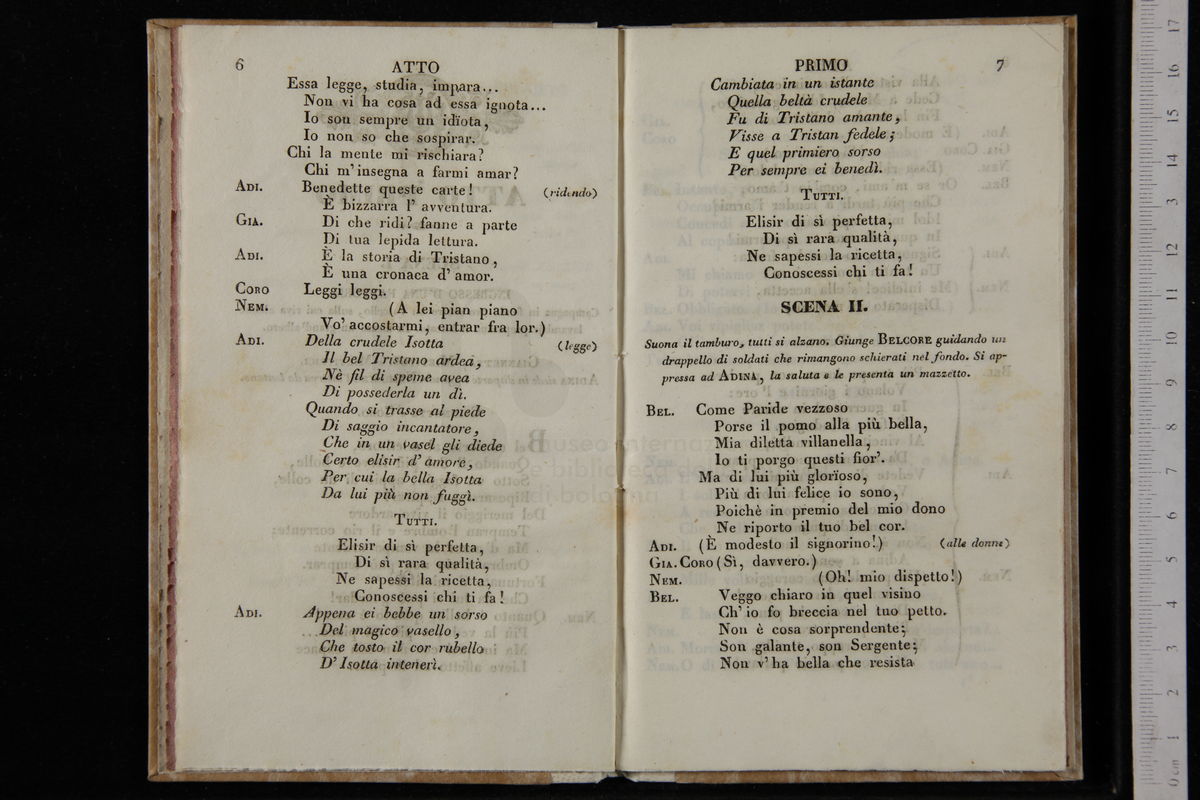 6
ATTO
Essa legge, studia, impara...
Non vi ha cosa ad essa ignota...
Io son sempre un idïota,
Io non so che sospirar.
Chi la mente mi rischiara?
Chi m'insegna a farmi amar?
ADI. Benedette queste carte! (ridendo)
È bizzarra l' avventura.
GIA. Di che ridi? fanne a parte
Di tua lepida lettura.
ADI. È la storia di Tristano,
È una cronaca d' amor.
CORO Leggi leggi.
NEM. (A lei pian piano
Vo' accostarmi, entrar fra lor.)
ADI. Della crudele Isotta (legge)
Il bel Tristano ardea,
Nè fil di speme avea
Di possederla un dì.
Quando si trasse al piede
Di saggio incantatore,
Che in un vasel gli diede
Certo elisir d' amore,
Per cui la bella Isotta
Da lui più non fuggì.
TUTTI.
Elisir di sì perfetta,
Di sì rara qualità,
Ne sapessi la ricetta,
Conoscessi chi ti fa!
ADI. Appena ei bebbe un sorso
Del magico vasello,
Che tosto il cor rubello
D' Isotta intenerì.
PRIMO
7
Cambiata in un istante
Quella beltà crudele
Fu di Tristano amante,
Visse a Tristan fedele;
E quel primiero sorso
Per sempre ei benedì.
TUTTI.
Elisir di sì perfetta,
Di sì rara qualità,
Ne sapessi la ricetta,
Conoscessi chi ti fa!
SCENA II.
Suona il tamburo, tutti si alzano. Giunge BELCORE guidando un
drappello di soldati che rimangono schierati nel fondo. Si ap-
pressa ad ADINA, la saluta e le presenta un mazzetto.
BEL. Come Paride vezzoso
Porse il pomo alla più bella,
Mia diletta villanella,
Io ti porgo questi fior'.
Ma di lui più glorïoso,
Più di lui felice io sono,
Poichè in premio del mio dono
Ne riporto il tuo bel cor.
ADI. (È modesto il signorino!) (alle donne)
GIA. CORO (Sì, davvero.)
NEM. (Oh! mio dispetto!)
BEL. Veggo chiaro in quel visino
Ch' io fo breccia nel tuo petto.
Non è cosa sorprendente;
Son galante, son Sergente;
Non v' ha bella che resista